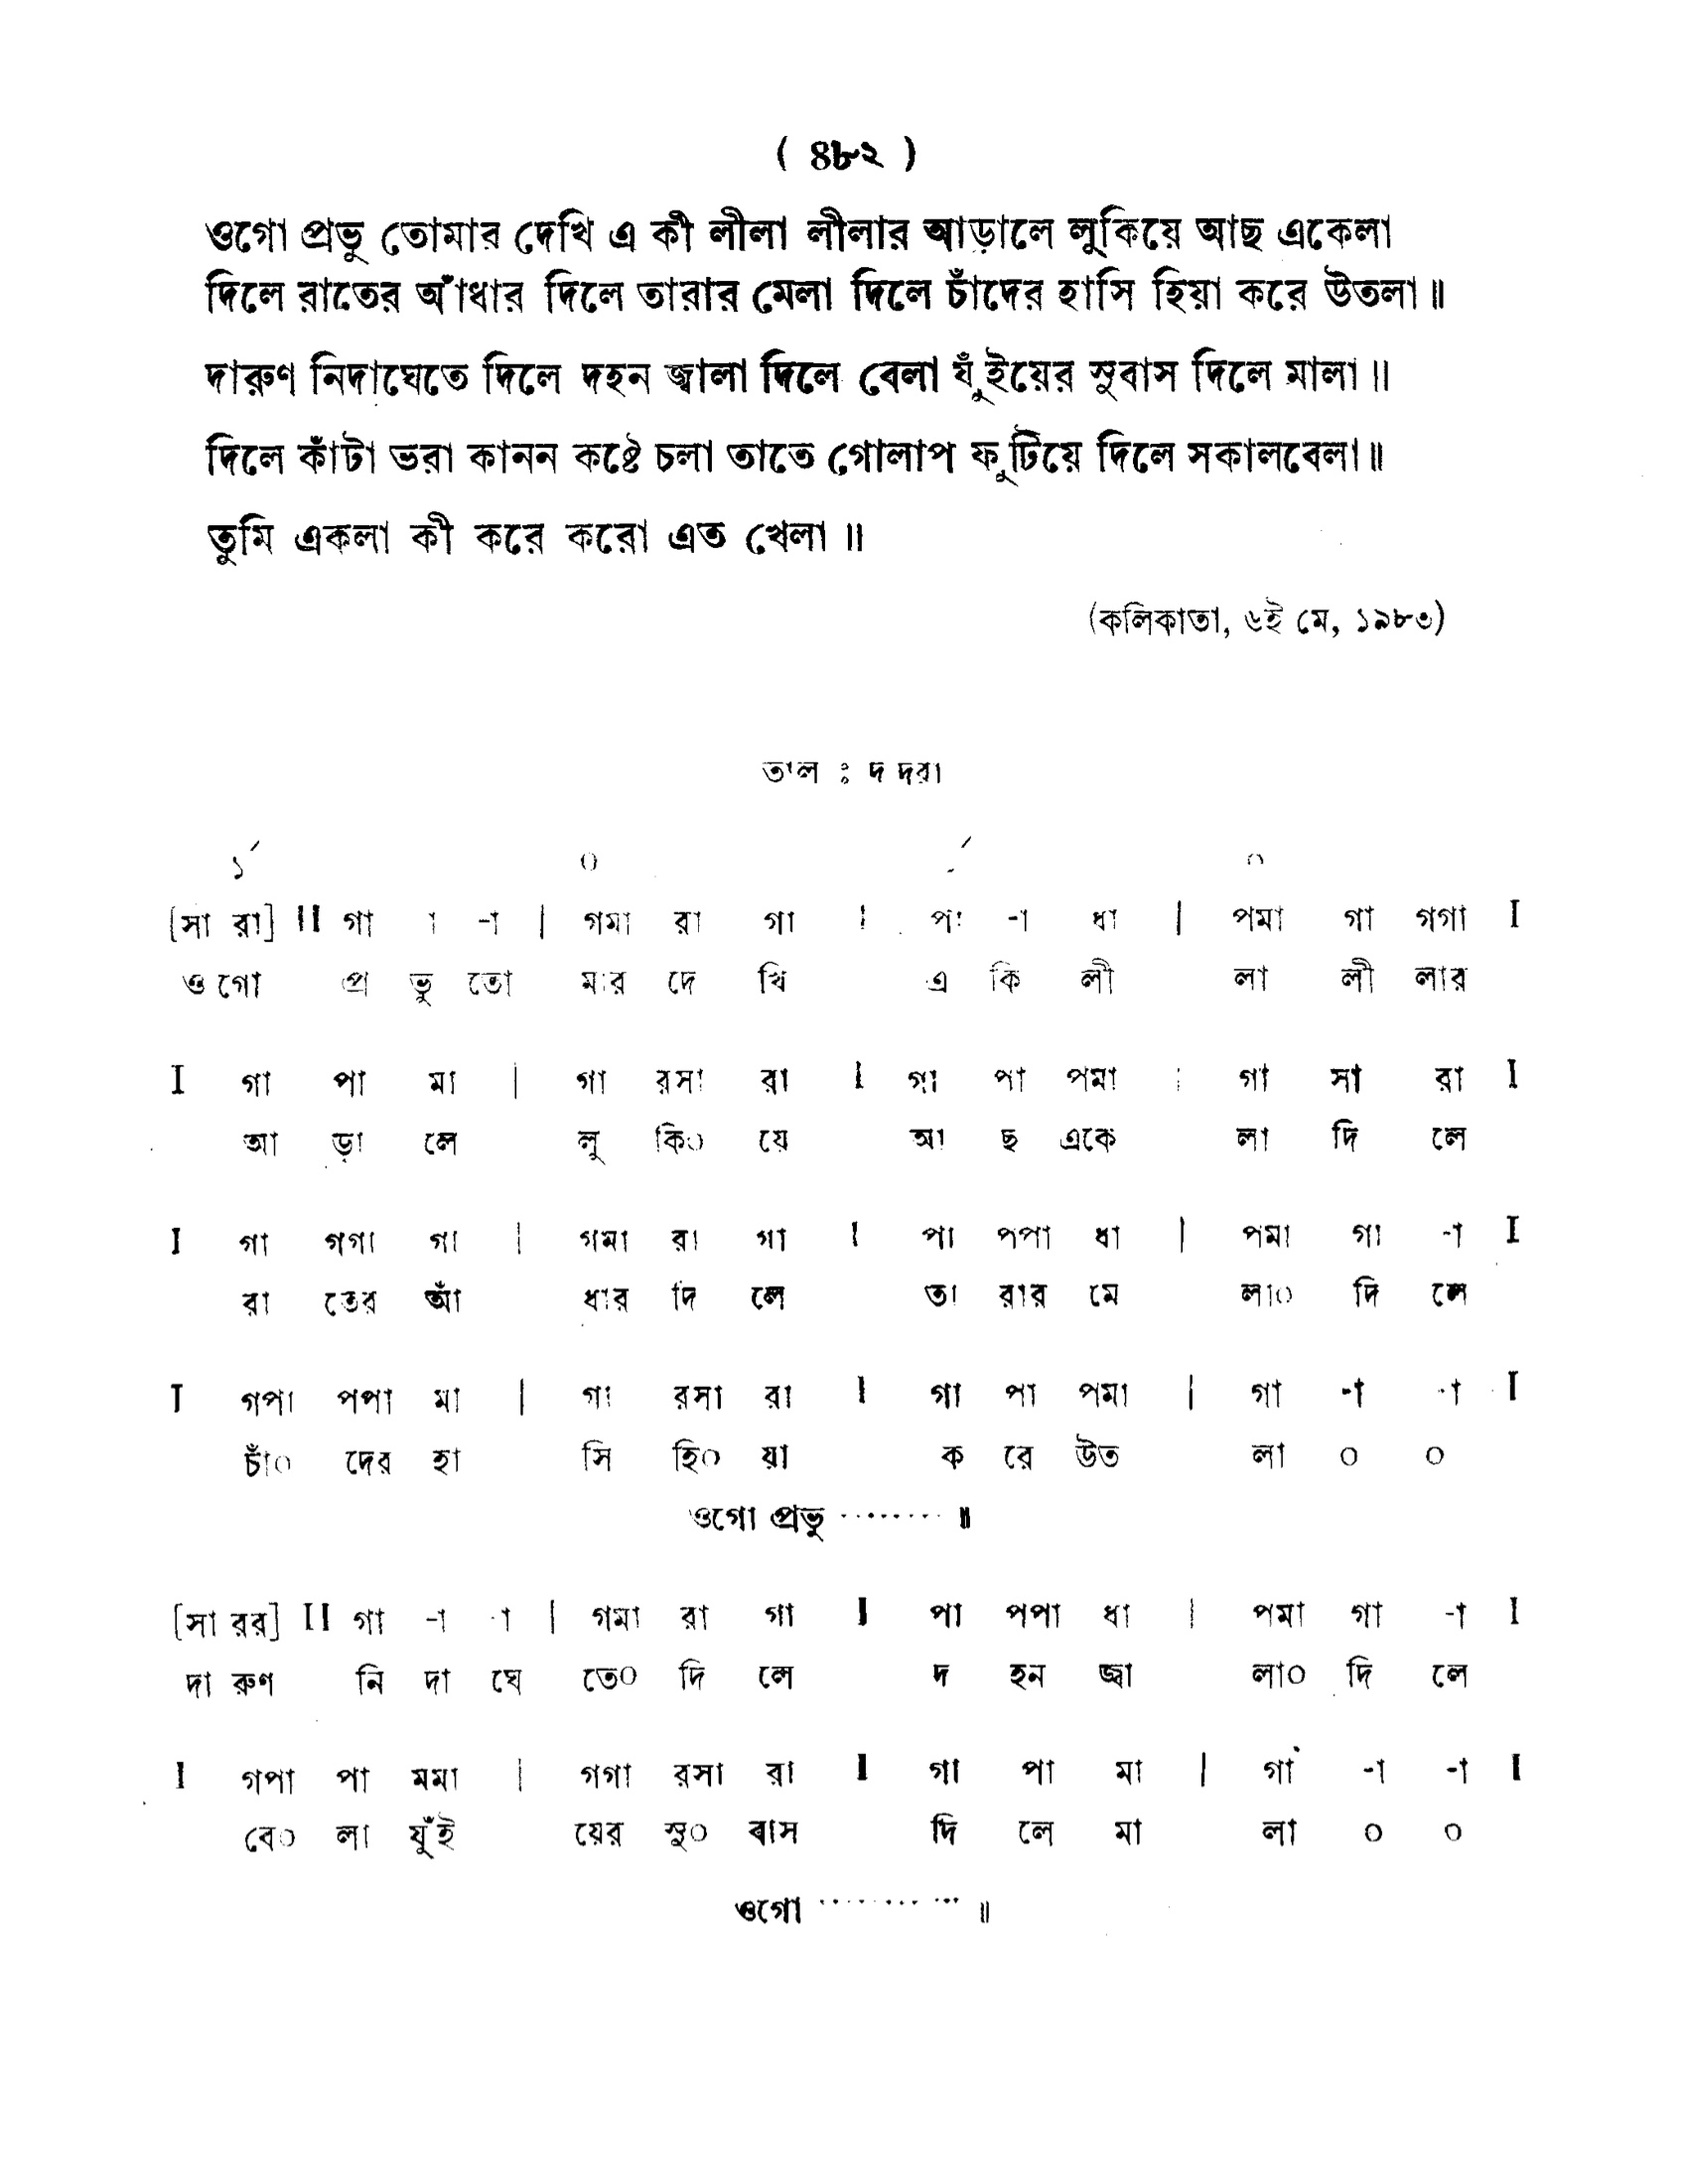 ( ৪৮২ )
ওগো প্রভু তোমার দেখি এ কী লীলা লীলার আড়ালে লুকিয়ে আছ একেলা
দিলে রাতের আঁধার দিলে তারার মেলা দিলে চাঁদের হাসি হিয়া করে উতলা॥
দারুণ নিদাঘেতে দিলে দহন জ্বালা দিলে বেলা যুঁইয়ের সুবাস দিলে মালা॥
দিলে কাঁটা ভরা কানন কষ্টে চলা তাতে গোলাপ ফুটিয়ে দিলে সকালবেলা॥
তুমি একলা কী করে করো এত খেলা॥
(কলিকাতা, ৬ই মে, ১৯৮৩)
তাল : দদরা
১́ ০ ০
[সা রা] II গা া -া | গমা রা গা I পা -া ধা | পমা গা গগা I
ও গো প্র ভু তো মার দে খি এ কি লী লা লী লার
I গা পা মা | গা রসা রা I গা পা পমা | গা সা রা I
আ ড়া লে লু কি০ য়ে আ ছ একে লা দি লে
I গা গগা গা | গমা রা গা I পা পপা ধা | পমা গা -া I
রা তের আঁ ধার দি লে তা রার মে লা০ দি লে
I গপা পপা মা | গা রসা রা I গা পা পমা | গা -া -া I
চাঁ০ দের হা সি হি০ য়া ক রে উত লা ০ ০
ওগো প্রভু ········ ॥
[সা রর] II গা -া -া | গমা রা গা I পা পপা ধা | পমা গা -া I
দা রুণ নি দা ঘে তে০ দি লে দ হন জ্বা লা০ দি লে
I গপা পা মমা | গগা রসা রা I গা পা মা | গা -া -া I
বে০ লা যুঁই য়ের সু০ বাস দি লে মা লা ০ ০
ওগো ··········· ॥